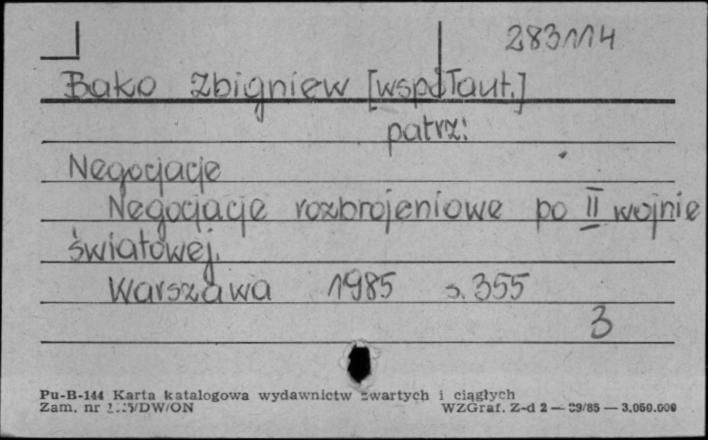 283114
Bako Zbigniew [współaut.]
patrz:
Negocjacje
Negocjacje rozbrojeniowe po II wojnie
światowej.
Warszawa 1985 s. 355
3
Pu-B-144 Karta katalogowa wydawnictw zwartych i ciągłych
Zam. nr WZGraf. Z-d 2 — 89/85 — 3.050.000